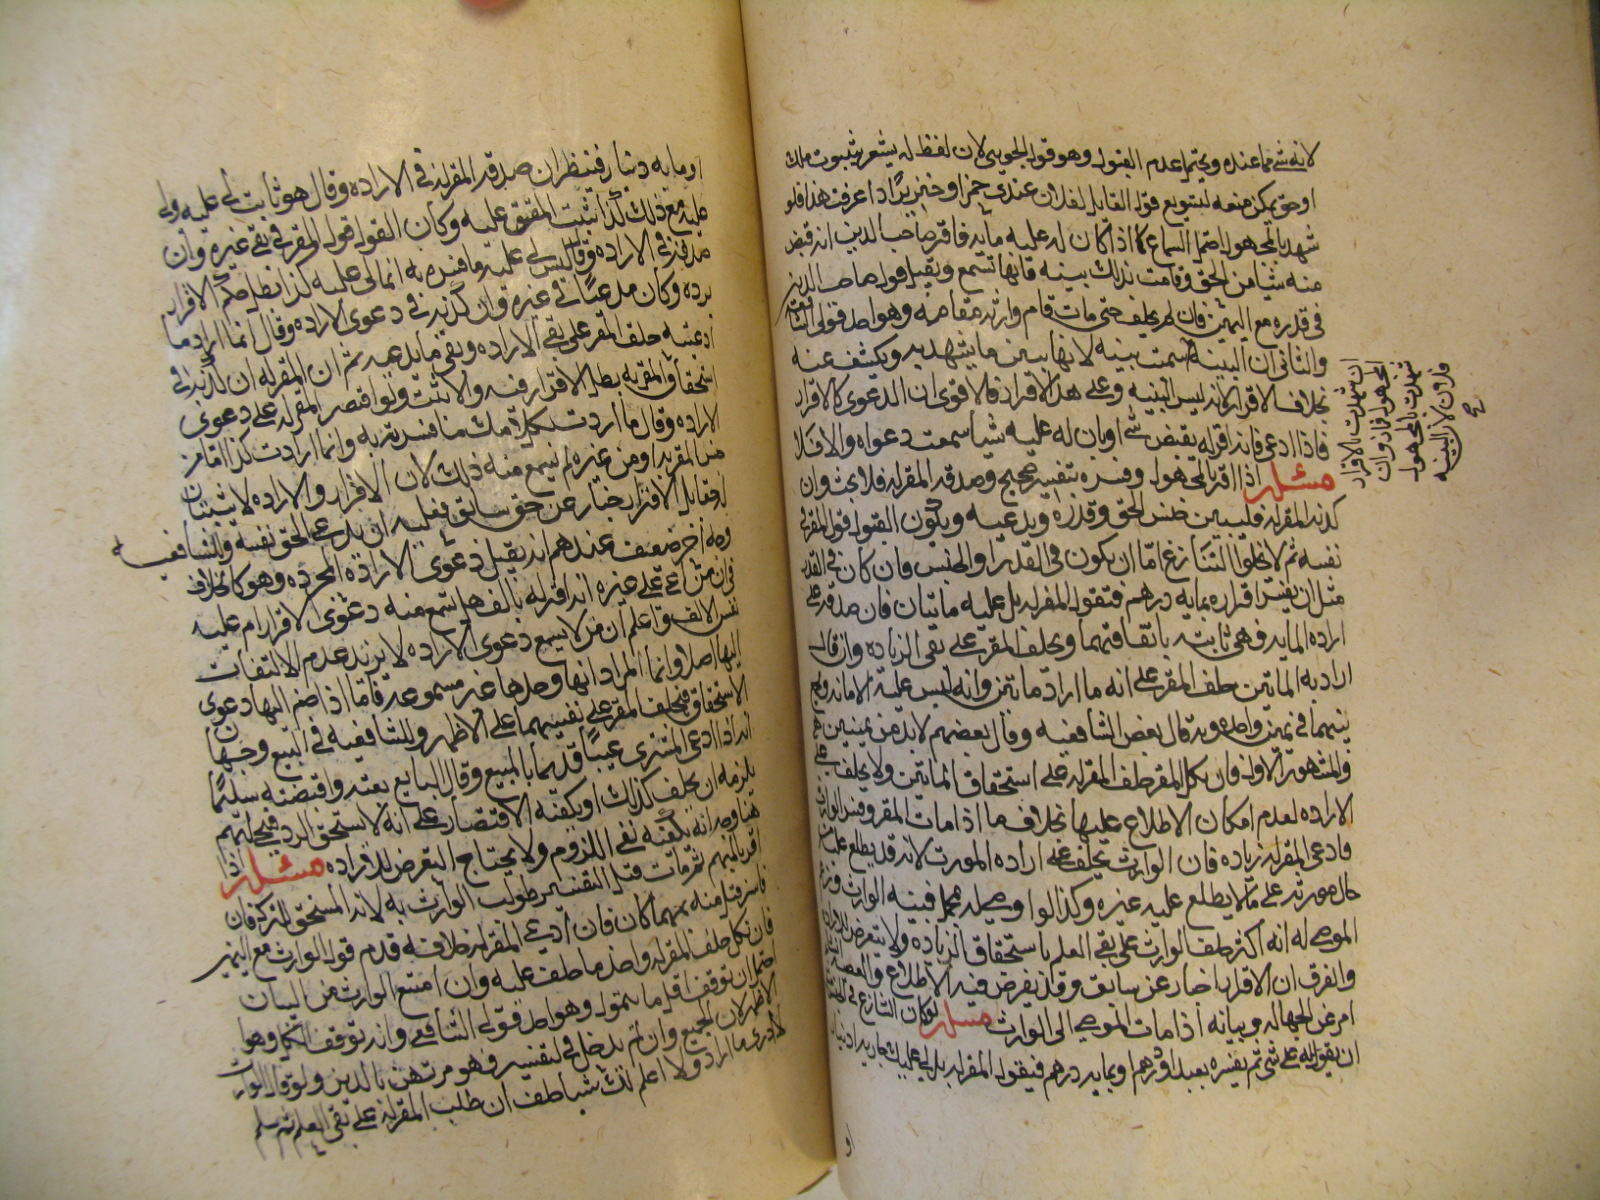 لانه شي مما عنده ويحتمل عدم القبول وهو قول الجويني لان لفظ له يشعر بثبوت ملك
او حق يمكن منعه ليتنوع قول القايل لفلان عندي خمرا وخنزيرا اذا عرفت هذا فلو
شهد بالمجهول احتمل السماع كما اذا كان له عليه مايه فاقر صاحب الدين انه قبض
منه شيا من الحق وقامت بذلك بينه فانها تسمع ويقبل قول صاحب الدين
في قدره مع اليمين فان لم يحلف حتى مات قام وارثه مقامه وهو احد قولي الشافعيه
والثاني ان البينه سميت بينه لانها تبين ما يشهد به ويكشف عنه
بخلاف الاقرار لانه ليس ببينه وعلى هذا الاقرار فالاقوى ان الدعوى كالاقرار
فاذا ادعى فانه اقر له بقبض شي اوبان له عليه شيا سمعت دعواه والا فلا
مسئله اذا اقر بالمجهول وفسره بتفسير صحيح وصدقه المقر له فلا بحث وان
كذبه المقر له فليبين جنس الحق وقدره ويدعيه ويكون القول قول المقر في
نفسه ثم لا يخلو التنازع اما ان يكون في القدر او الجنس فان كان في القدر
مثل ان يفسر اقراره بمايه درهم فيقول المقر له بل عليه مايتان فان صدقه على
اراده المايه فهي ثابته باتفاقهما ويحلف المقر على نفي الزياده وان قال
اراد به المايتين حلف المقر على انه ما اراد مايتين وانه ليس عليه الا مايه ويجمع
بينهما في يمين واحده وبه قال بعض الشافعيه وقال بعضهم لا بد من يمينين
والمشهور الاول فان نكل المقر حلف المقر له على استحقاق المايتين ولا يحلف على
الاراده لعدم امكان الاطلاع عليها بخلاف ما اذا مات المقر وفسر الوارث
فادعى المقر له زياده فان الوارث يحلف على اراده المورث لانه قد يطلع على
حال مورثه على ما لا يطلع عليه غيره وكذا لو اوصى له بمجمل فبينه الوارث وزعم
الموصى له انه اكثر حلف الوارث على نفي العلم باستحقاق الزياده ولا يتعرض للاراده
والفرق ان الاقرار اخبار عن سابق وقد يفرض فيه الاطلاع والوصيه
امر عن الجهاله وبيانه اذا مات الموصي الى الوارث مسئله لو كان التنازع في الجنس
ان يقول له علي شي ثم يفسره بعبد او درهم او بمايه درهم فيقول المقر له بل لي عليك جاريه او دينار
او
ان شهدت بالاقرار
المجهول فاذوان
شهدت بالمجهول
فلا لان البينه
صح
او مايه دينار فننظر ان صدقه المقر له في الاراده وقال هو ثابت لي عليه ولي
عليه مع ذلك كذا يثبت المتفق عليه وكان القول قول المقر في نفي غيره وان
صدقه في الاراده وقال ليس لي عليه ما فسره به انما لي عليه كذا بطل حكم الاقرار
برده وكان مدعيا في غيره وان كذبه في دعوى الاراده وقال انما اراد ما
ادعيته حلف المقر على نفي الاراده ونفي ما يدعيه ثم ان المقر له ان كذبه في
استحقاق المقر به بطل الاقرار فيه والا ثبت ولو اقتصر المقر له على دعوى
الاراده وقال ما اردت بكلامك ما فسرته به وانما اردت كذا اما من
جنس المقر به او من غيره لم يسمع منه ذلك لان الاقرار والاراده لا يثبتان
له حقا بل الاقرار اخبار عن حق سابق فعليه ان يدعي الحق نفسه وللشافعيه
وجه اخر ضعيف عندهم انه يقبل دعوى الاراده المجرده وهو كالخلاف
في ان من ادعى على غيره انه اقر له بالف هل يسمع منه دعوى الاقرار ام عليه
نفس الالف واعلم ان من لا يسمع دعوى الاراده لا يريد عدم الالتفات
اليها اصلا وانما المراد انها وحدها غير مسموعه فاما اذا ضم اليها دعوى
الاستحقاق فيحلف المقر على نفيهما على الاظهر وللشافعيه في البيع وجها
انه اذا ادعى المشتري عيبا قديما بالمبيع وقال البايع بعته واقبضته سليما
يلزمه ان يحلف كذلك او يكفيه الاقتصار على انه لا يستحق الرد فيحلفهم
هنا وجه انه يكفيه نفي اللزوم ولا يحتاج التعرض للاراده مسئله اذا
اقر بالمبهم ثم مات قبل التفسير طولب الوارث به لانه المستحق للتركه فان
فسر قبل منه مهما كان فان ادعى المقر له خلافه قدم قول الوارث مع اليمين
فان نكل حلف المقر له واخذ ما حلف عليه وان امتنع الوارث من البيان
احتمل ان توقف اقل ما يتمول وهو احد قولي الشافعي وانه توقف الكل وهو
الاظهر لان الجميع وان لم يدخل في التفسير فهو مرتهن بالدين ولو قال الوارث
لا ادري ما اراد ولا اعلم لك شيا حلف ان طلب المقر له على نفي العلم ثم سلم